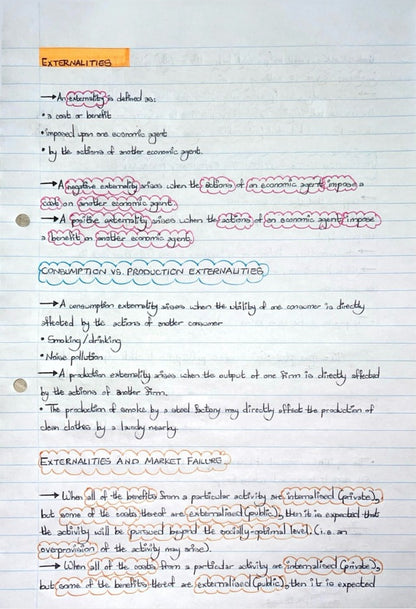 EXTERNALITIES
→ An externality is defined as:
• a cost or benefit
• imposed upon one economic agent
• by the actions of another economic agent.
→ A negative externality arises when the actions of an economic agent impose a
cost on another economic agent.
→ A positive externality arises when the actions of an economic agent impose
a benefit on another economic agent.
CONSUMPTION VS. PRODUCTION EXTERNALITIES
→ A consumption externality arises when the utility of one consumer is directly
affected by the actions of another consumer
• Smoking/drinking
• Noise pollution
→ A production externality arises when the output of one firm is directly affected
by the actions of another firm.
• The production of smoke by a steel factory may directly affect the production of
clean clothes by a laundry nearby.
EXTERNALITIES AND MARKET FAILURE
→ When all of the benefits from a particular activity are internalised (private),
but some of the costs thereof are externalised (public), then it is expected that
the activity will be pursued beyond the socially-optimal level. (i.e. an
overprovision of the activity may arise).
→ When all of the costs from a particular activity are internalised (private),
but some of the benefits thereof are externalised (public), then it is expected